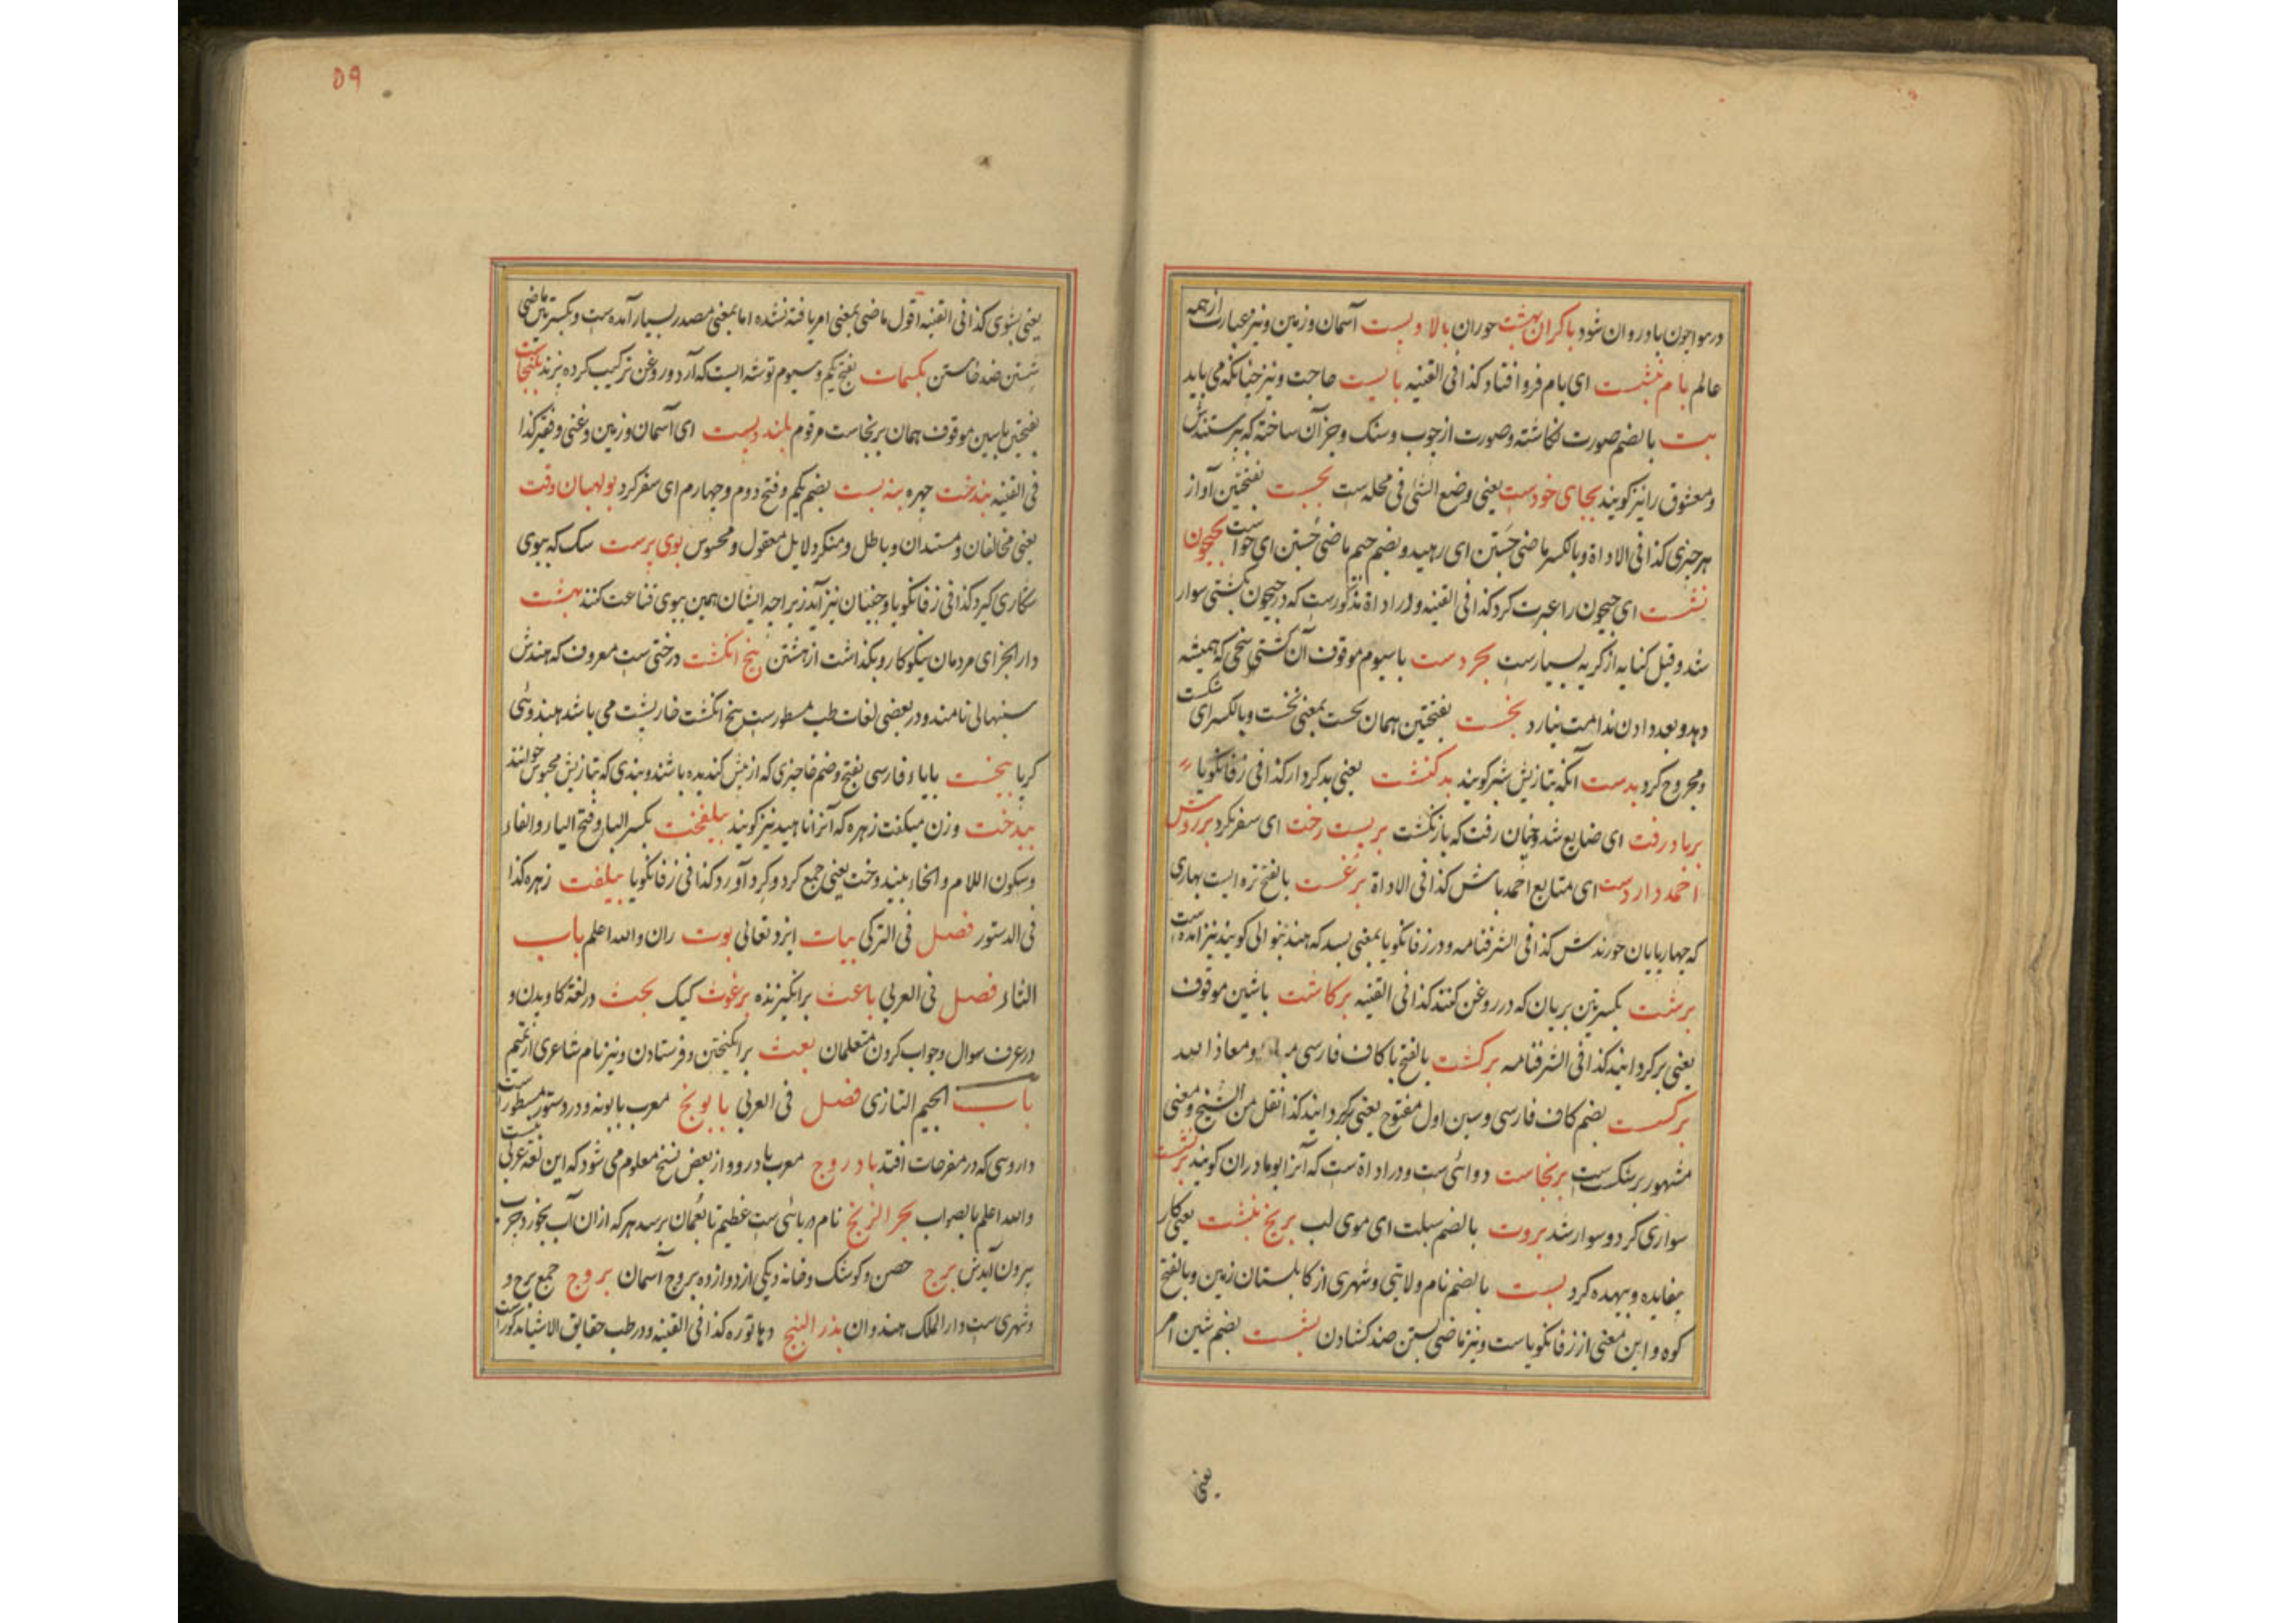 در هوا چون باد روان شود باکران بهشت حوران بالا و پست آسمان و زمین و نیز عبارت از همه
عالم بام نشست ای بام فرو افتاد کذا فی القنیه بایست حاجت و نیز چنانکه می باید
بت بالضم صورت نکاشته و صورت از چوب و سنک و جز آن ساخته که پرستندش
و معشوق را نیز کویند بجای خودست یعنی وضع الشی فی محله ست بجست بفتحتین آواز
هر چیزی کذا فی الاداة و بالکسر ماضی جستن ای رهید و بضم جیم ماضی جستن ای خواست بجیحون
نشست ای جیحون را عبرت کرد کذا فی القنیه و در اداة مذکورست که در جیحون بکشتی سوار
شد و قیل کنایه از کریه بسیارست بحر دست با سیوم موقوف آن کشتی سخی که همیشه
دهد و بعد دادن ندامت نیارد بخست بفتحتین همان نخست بمعنی نخست و بالکسر ای شکست
و مجروح کرد بدست آنکه بتازیش شبر کویند بدکنشت یعنی بدکردار کذا فی زفانکویا
برباد رفت ای ضایع شد و چنان رفت که باز نکشت بربست رخت ای سفر کرد بر روش
احمد دار دست ای متابع احمد باش کذا فی الاداة برغست بالفتح تره ایست بهاری
که چهارپایان خورندش کذا فی الشرفنامه و در زفانکویا بمعنی بسد که هندش والی کویند نیز آمده است
برشت بکسرتین بریان که در روغن کنند کذا فی القنیه برکاشت با شین موقوف
یعنی برکردانید کذا فی الشرفنامه برکشت بالفتح با کاف فارسی و معاذ الله
برکست بضم کاف فارسی و سین اول مفتوح یعنی برکردانید کذا نقل من الشیخ و معنی
مشهور برشکست ست برنجاست دوائی ست و در اداة ست که آنرا بومادران کویند برنشست
سواری کرد و سوار شد بروت بالضم سبلت ای موی لب بریخ نبشت یعنی کار
بیفایده و بیهده کرد بست بالضم نام ولایتی و شهری از کابلستان زمین و بالفتح
کوه و این معنی از زفانکویاست و نیز ماضی بستن ضد کشادن بشست بضم شین امر
یعنی
۵۹
یعنی بشوی کذا فی القنیه اقول ماضی بمعنی امر یافته نشده اما بمعنی مصدر بسیار آمده ست و بکسرتین ماضی
شستن ضد خاستن بکسمات بفتح یکم و سیوم توشه ایست که آرد و روغن ترکیب کرده پزند بلنجاست
بفتحتین با سین موقوف همان برنجاست مرقوم بلند و پست ای آسمان و زمین و غنی و فقیر کذا
فی القنیه بندخت چهره بنه بست بضم یکم و فتح دوم و چهارم ای سفر کرد بولهبان وقت
یعنی مخالفان و مستندان و باطل و منکر دلایل معقول و محسوس بوی پرست سک که ببوی
شکاری کیرد کذا فی زفانکویا و جنیان نیز آید زیراچه ایشان همین ببوی قناعت کنند بهشت
دار الجزای مردمان نیکوکار و بکذاشت از هشتن پنج انکشت درختی ست معروف که هندش
سنبهالی نامند و در بعضی لغات طب مسطورست پنج انکشت خارپشت می باشد بهندوئی
کریا بیخست بایاء فارسی بفتح و ضم خا چیزی که از بیش کندیده باشند و بندی که بتازیش محبوس خوانند
بیدخت وزن میکفت زهره که آنرا ناهید نیز کویند بیلفخت بکسر الباء و فتح الیاء و الفاء
و سکون اللام و الخاء بیندوخت یعنی جمع کرد و کرد آورد کذا فی زفانکویا بیلفت زهره کذا
فی الدستور فصل فی الترکی بیات ایزد تعالی بوت ران والله اعلم باب
الثاء فصل فی العربی باعث برانکیزنده برغوث کیک بحث در لغة کاویدن و
در عرف سوال و جواب کردن متعلمان بعث برانکیختن و فرستادن و نیز نام شاعری از تمیم
باب الجیم التازی فصل فی العربی بابونج معرب بابونه و در دستور مسطور است
داروی که در مفرحات افتد بادروج معرب بادروه و از بعض نسخ معلوم می شود که این لغة عربی نیست
والله اعلم بالصواب بحر الزنج نام دریائی ست عظیم تا بعمان برسد هر که از ان آب بخورد جرب
بیرون آیدش برج حصن و کوشک و خانه و یکی از دوازده بروج آسمان بروج جمع برج و
و شهری ست و دار الملک هندوان بذر البنج دهاتوره کذا فی القنیه و در طب حقایق الاشیا مذکور است